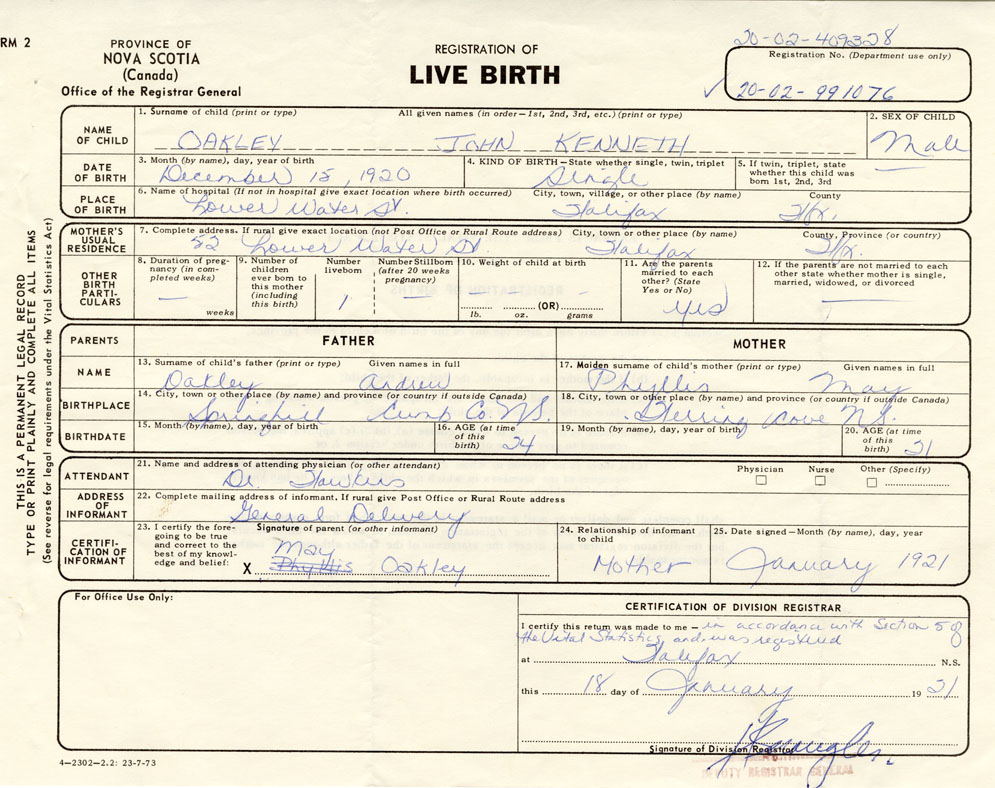 RM 2
PROVINCE OF
NOVA SCOTIA
(Canada)
Office of the Registrar General
REGISTRATION OF
LIVE BIRTH
20-02-409328
Registration No. (Department use only)
✓ 20-02-991076
THIS IS A PERMANENT LEGAL RECORD
TYPE OR PRINT PLAINLY AND COMPLETE ALL ITEMS
(See reverse for legal requirements under the Vital Statistics Act)
NAME OF CHILD
1. Surname of child (print or type) All given names (in order—1st, 2nd, 3rd, etc.) (print or type)
OAKLEY JOHN KENNETH
2. SEX OF CHILD
Male
DATE OF BIRTH
3. Month (by name), day, year of birth
December 15, 1920
4. KIND OF BIRTH—State whether single, twin, triplet
Single
5. If twin, triplet, state whether this child was born 1st, 2nd, 3rd
PLACE OF BIRTH
6. Name of hospital (If not in hospital give exact location where birth occurred) City, town, village, or other place (by name) County
Lower Water St. Halifax Hfx.
MOTHER'S USUAL RESIDENCE
7. Complete address. If rural give exact location (not Post Office or Rural Route address) City, town or other place (by name) County, Province (or country)
52 Lower Water St. Halifax Hfx.
OTHER BIRTH PARTICULARS
8. Duration of pregnancy (in completed weeks)
— weeks
9. Number of children ever born to this mother (including this birth)
Number liveborn
1
Number Stillborn (after 20 weeks pregnancy)
—
10. Weight of child at birth
—
(OR)
lb. oz. grams
11. Are the parents married to each other? (State Yes or No)
yes
12. If the parents are not married to each other state whether mother is single, married, widowed, or divorced
—
PARENTS FATHER MOTHER
NAME
13. Surname of child's father (print or type) Given names in full
Oakley Andrew
17. Maiden surname of child's mother (print or type) Given names in full
Phyllis May
BIRTHPLACE
14. City, town or other place (by name) and province (or country if outside Canada)
Springhill Cumb Co. N.S.
18. City, town or other place (by name) and province (or country if outside Canada)
Herring Cove N.S.
BIRTHDATE
15. Month (by name), day, year of birth
16. AGE (at time of this birth) 24
19. Month (by name), day, year of birth
20. AGE (at time of this birth) 21
ATTENDANT
21. Name and address of attending physician (or other attendant)
Dr. Hawkins
Physician Nurse Other (Specify)
ADDRESS OF INFORMANT
22. Complete mailing address of informant. If rural give Post Office or Rural Route address
General Delivery
CERTIFICATION OF INFORMANT
23. I certify the foregoing to be true and correct to the best of my knowledge and belief:
Signature of parent (or other informant)
May
X Phyllis Oakley
24. Relationship of informant to child
Mother
25. Date signed—Month (by name), day, year
January 1921
For Office Use Only:
CERTIFICATION OF DIVISION REGISTRAR
I certify this return was made to me — in accordance with Section 5 of
the Vital Statistics and was registered
at Halifax N.S.
this 18 day of January 19 21
Signature of Division Registrar
DEPUTY REGISTRAR GENERAL
4—2302—2.2: 23-7-73